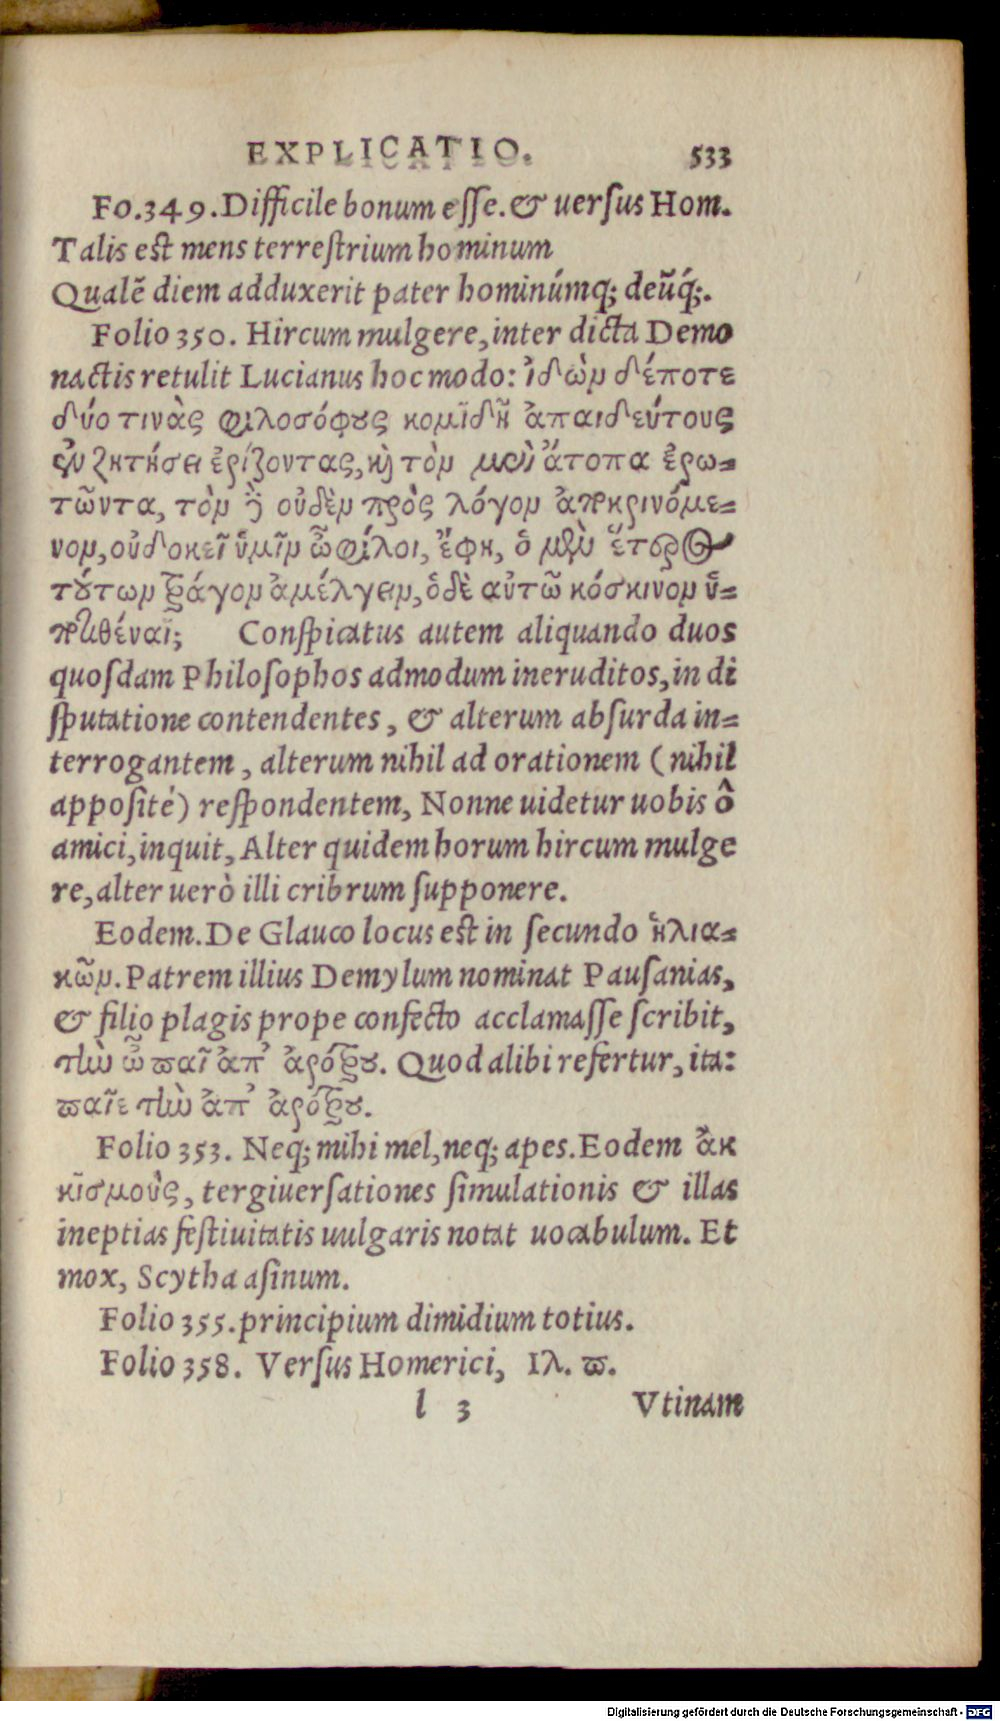 EXPLICATIO. 533
Fo.349.Difficile bonum esse.& uersus Hom.
Talis est mens terrestrium hominum
Qualẽ diem adduxerit pater hominúmq; deũq́;.
Folio 350. Hircum mulgere,inter dicta Demo
nactis retulit Lucianus hoc modo: ἰδὼν δέποτε
δύο τινὰς φιλοσόφους κομιδῆ ἀπαιδεύτους
ἐν ζητήσει ἐρίζοντας, καὶ τὸν μὲν ἄτοπα ἐρω=
τῶντα, τὸν δὲ οὐδὲν πρὸς λόγον ἀποκρινόμε=
νον, οὐ δοκεῖ ὑμῖν ὦ φίλοι, ἔφη, ὁ μὲν ἕτερος
τούτων τράγον ἀμέλγειν, ὁδὲ αὐτῶ κόσκινον ὑ=
ποτιθέναι; Conspicatus autem aliquando duos
quosdam Philosophos admodum ineruditos,in di
sputatione contendentes, & alterum absurda in=
terrogantem, alterum nihil ad orationem (nihil
apposité) respondentem, Nonne uidetur uobis ô
amici,inquit, Alter quidem horum hircum mulge
re,alter uerò illi cribrum supponere.
Eodem.De Glauco locus est in secundo ἠλια=
κῶν. Patrem illius Demylum nominat Pausanias,
& filio plagis prope confecto acclamasse scribit,
τὴν ὦ παῖ ἀπ' ἀρότρου. Quod alibi refertur, ita:
παῖε τὴν ἀπ' ἀρότρου.
Folio 353. Neq; mihi mel,neq; apes.Eodem ἀκ
κισμοὺς, tergiuersationes simulationis & illas
ineptias festiuitatis uulgaris notat uocabulum. Et
mox, Scytha asinum.
Folio 355.principium dimidium totius.
Folio 358. Versus Homerici, Ιλ. π.
l 3 Vtinam
Digitalisierung gefördert durch die Deutsche Forschungsgemeinschaft - DFG